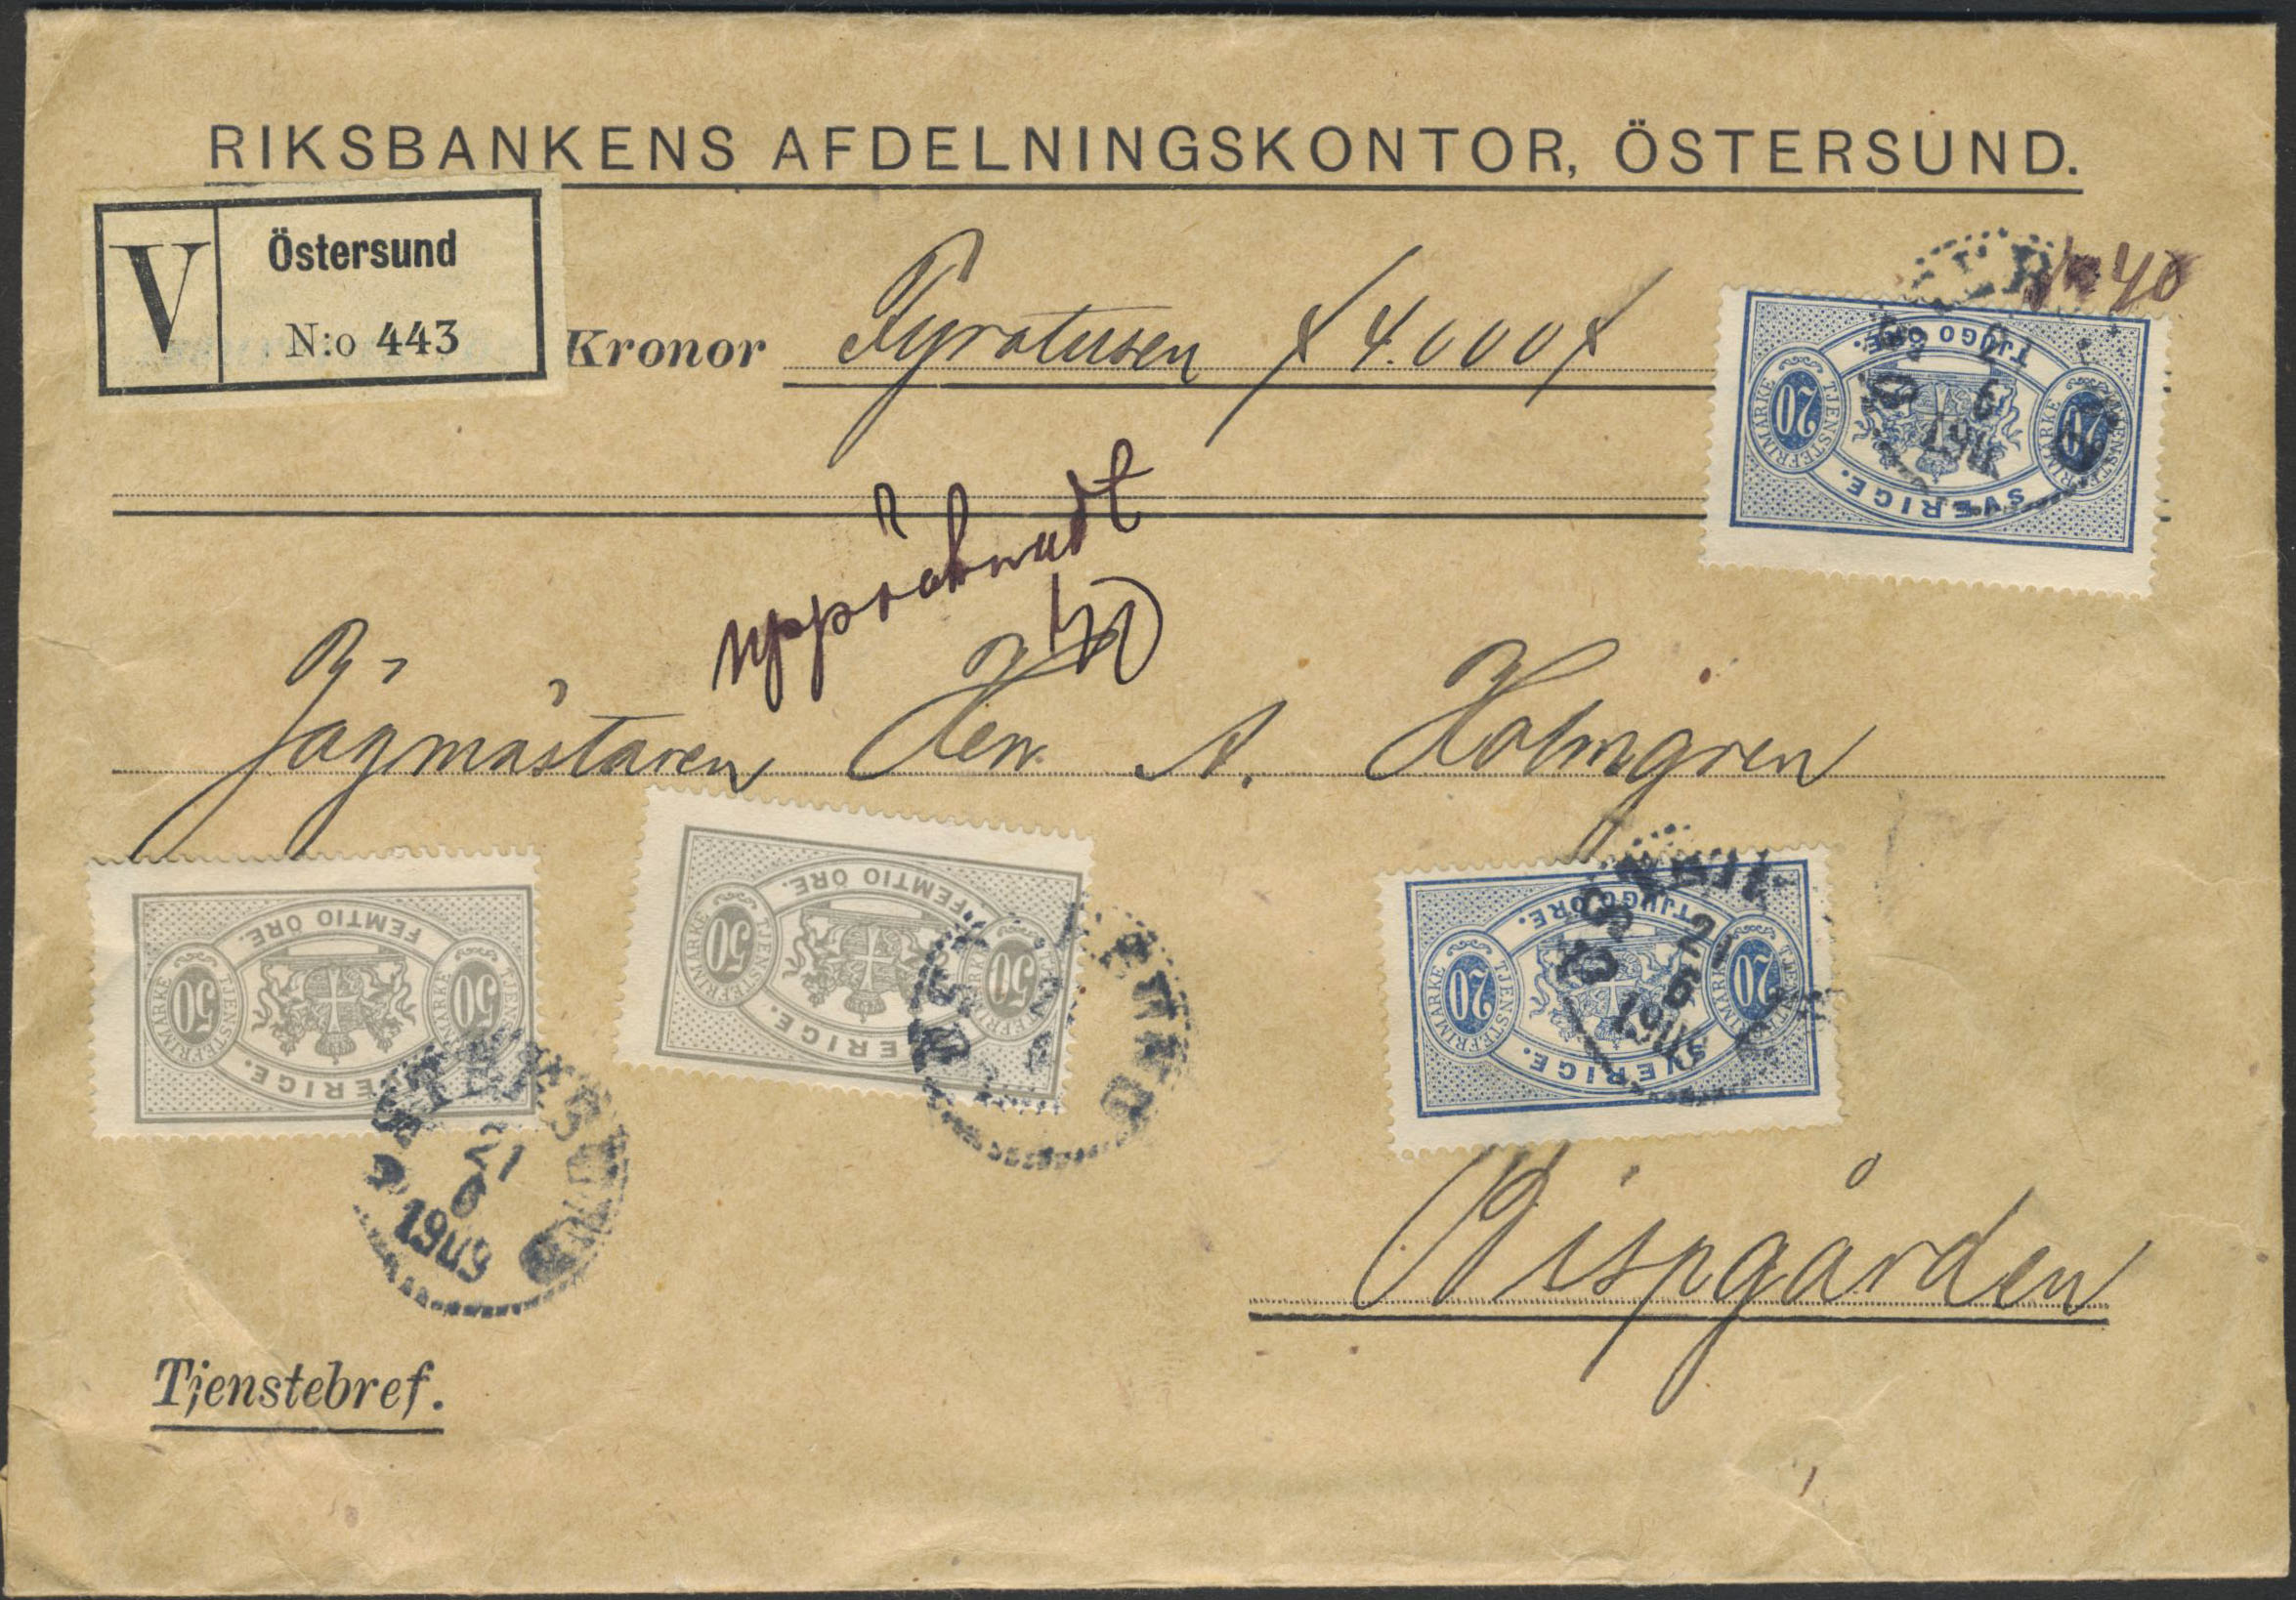 RIKSBANKENS AFDELNINGSKONTOR, ÖSTERSUND.
V Östersund
N:o 443
Kronor Fyratusen 4.000
No 40
TJUGO ÖRE.
20 TJENSTEFRIMÄRKE 20
SVERIGE.
uppräknadt
Jägmästaren Herr A. Holmgren
FEMTIO ÖRE.
50 TJENSTEFRIMÄRKE 50
SVERIGE.
FEMTIO ÖRE.
50 TJENSTEFRIMÄRKE 50
SVERIGE.
TJUGO ÖRE.
20 TJENSTEFRIMÄRKE 20
SVERIGE.
ÖSTERSUND
21
6
1909
Bispgården
Tjenstebref.